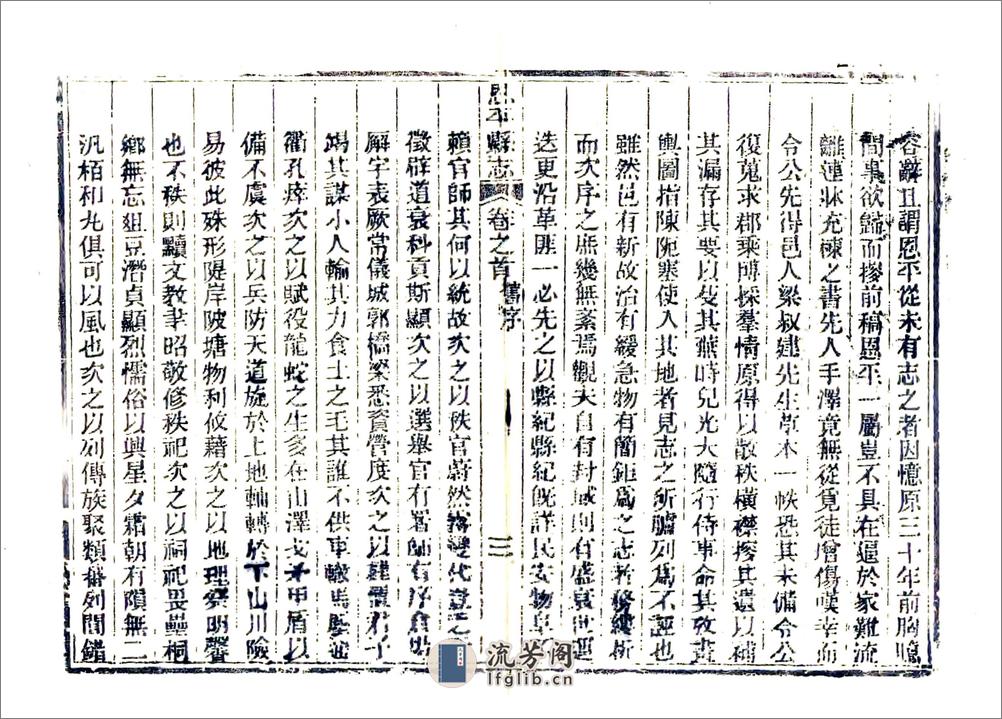 容辭且謂恩平從未有志之者因憶原三十年前胸臆
間事欲歸而摉前稿恩平一屬豈不具在逼於家難流
離連牀充棟之書先人手澤竟無從覓徒增傷嘆幸而
令公先得邑人梁叔建先生草本一帙恐其未備令公
復蒐求郡乘博採羣情原得以散秩橫襟摉其遺以補
其漏存其要以芟其蕪時兒光大隨行侍事命其攷畫
輿圖指陳阨塞使入其地者見志之所臚列爲不誣也
雖然邑有新故治有緩急物有簡鉅爲之志者
而次序之庶幾無紊焉觀天自有封域則有盛衰
迭更沿革匪一必先之以縣紀縣紀旣詳民安物阜
恩平縣志
卷之首
舊序
三
賴官師其何以統故次之以秩官蔚然
徵辟道衰科貢斯顯次之以選舉官有署師有序倉
廨字表厥常儀城郭橋梁悉資營度次之以建置君子
竭其謀小人輸其力食土之毛其誰不供車轍馬
衢孔瘁次之以賦役龍蛇之生多在山澤戈矛甲盾以
備不虞次之以兵防天道旋於上地軸轉於下山川險
易彼此殊形隄岸陂塘物利攸藉次之以地理察明聲
也不秩則黷文教聿昭敬修秩祀次之以祠祀畏壘祠
鄉無忘俎豆潛貞顯烈懦俗以興星夕霜朝有隕無二
汎栢和丸俱可以風也次之以列傳族聚類番列間錯
流芳阁
lfglib.cn